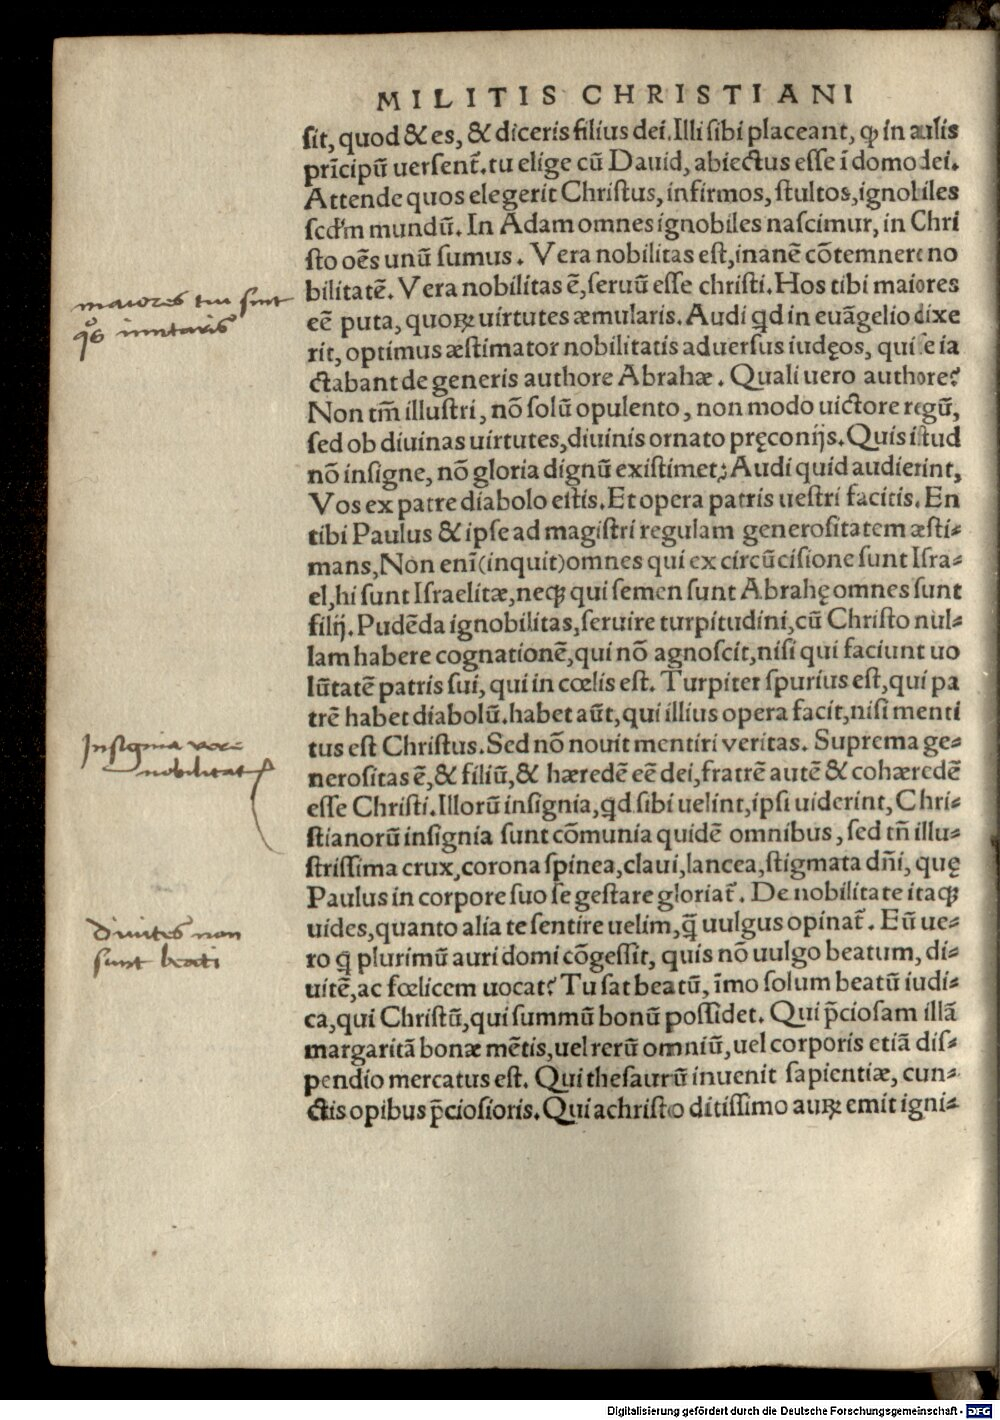 MILITIS CHRISTIANI
sit, quod & es, & diceris filius dei. Illi sibi placeant, ꝙ in aulis
prīcipū uersent̃. tu elige cū Dauid, abiectus esse ī domo dei.
Attende quos elegerit Christus, infirmos, stultos, ignobiles
scd'm mundū. In Adam omnes ignobiles nascimur, in Chri
sto oēs unū sumus. Vera nobilitas est, inanē cōtemnere no
bilitatē. Vera nobilitas ē, seruū esse christi. Hos tibi maiores
eē puta, quoꝝ uirtutes æmularis. Audi qd in euāgelio dixe
rit, optimus æstimator nobilitatis aduersus iudęos, qui se ia
ctabant de generis authore Abrahæ. Quali uero authore?
Non tm̄ illustri, nō solū opulento, non modo uictore regū,
sed ob diuinas uirtutes, diuinis ornato pręconijs. Quis istud
nō insigne, nō gloria dignū existimet? Audi quid audierint,
Vos ex patre diabolo estis. Et opera patris uestri facitis. En
tibi Paulus & ipse ad magistri regulam generositatem æsti-
mans, Non enī (inquit) omnes qui ex circūcisione sunt Isra-
el, hi sunt Israelitæ, neqꝫ qui semen sunt Abrahę omnes sunt
filij. Pudēda ignobilitas, seruire turpitudini, cū Christo nul-
lam habere cognationē, qui nō agnoscit, nisi qui faciunt uo
lūtatē patris sui, qui in cœlis est. Turpiter spurius est, qui pa
trē habet diabolū. habet aūt, qui illius opera facit, nisi menti
tus est Christus. Sed nō nouit mentiri veritas. Suprema ge-
nerositas ē, & filiū, & hæredē eē dei, fratrē autē & cohæredē
esse Christi. Illorū insignia, qd sibi uelint, ipsi uiderint, Chri-
stianorū insignia sunt cōmunia quidē omnibus, sed tn̄ illu-
strissima crux, corona spinea, claui, lancea, stigmata dn̄i, quę
Paulus in corpore suo se gestare gloriat̃. De nobilitate itaqꝫ
uides, quanto alia te sentire uelim, q̄ uulgus opinat̃. Eū ue-
ro q̄ plurimū auri domi cōgessit, quis nō uulgo beatum, di-
uitē, ac fœlicem uocat? Tu sat beatū, īmo solum beatū iudi-
ca, qui Christū, qui summū bonū possidet. Qui p̄ciosam illā
margaritā bonæ mētis, uel rerū omniū, uel corporis etiā dis-
pendio mercatus est. Qui thesaurū inuenit sapientiæ, cun-
ctis opibus p̄ciosioris. Qui a christo ditissimo auꝝ emit igni-
maiores tui sint
q̊s imitaris
Insignia vere
nobilitat
diuites non
sunt beati
Digitalisierung gefördert durch die Deutsche Forschungsgemeinschaft - DFG